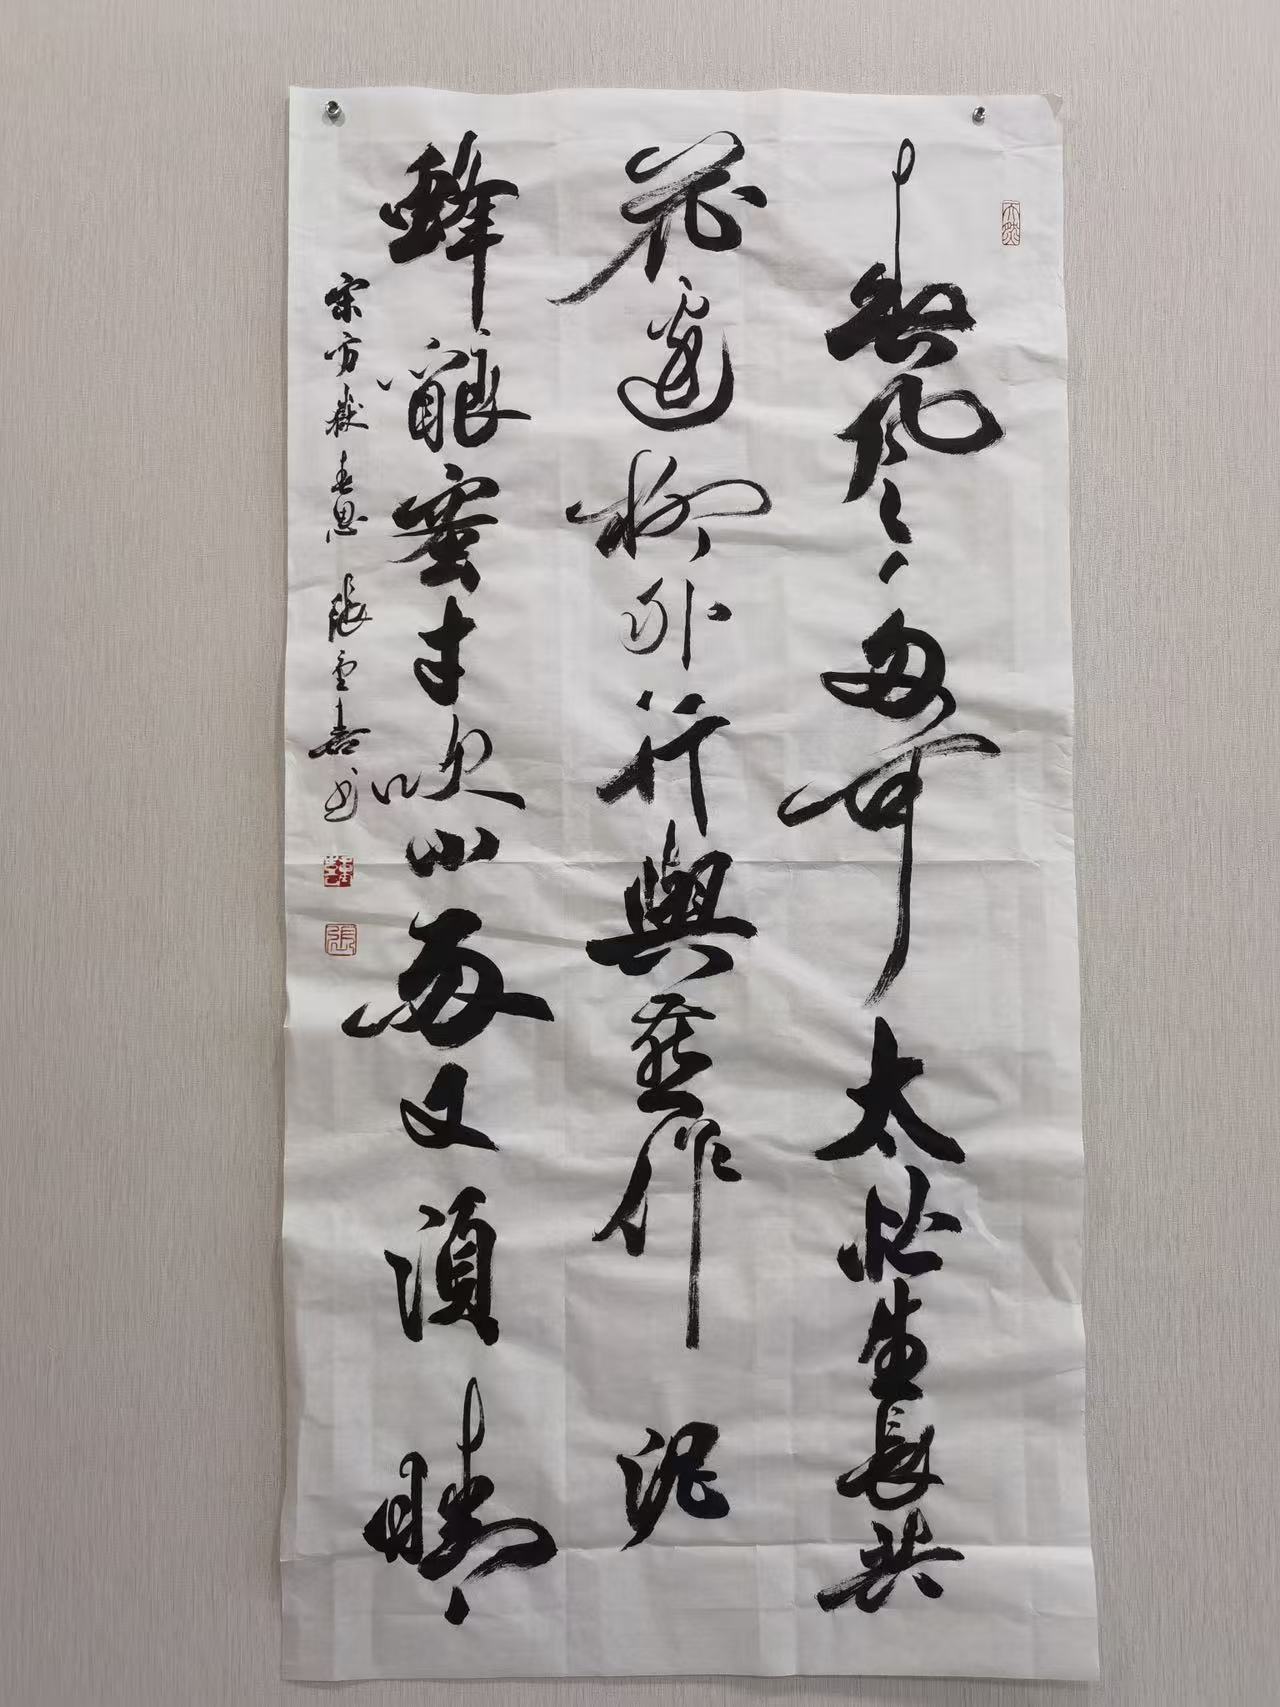 春風多可太忙生長共
花邊柳外行與燕作泥
蜂釀蜜才吹小雨又須晴
宋方嶽春思 張重喜书
張